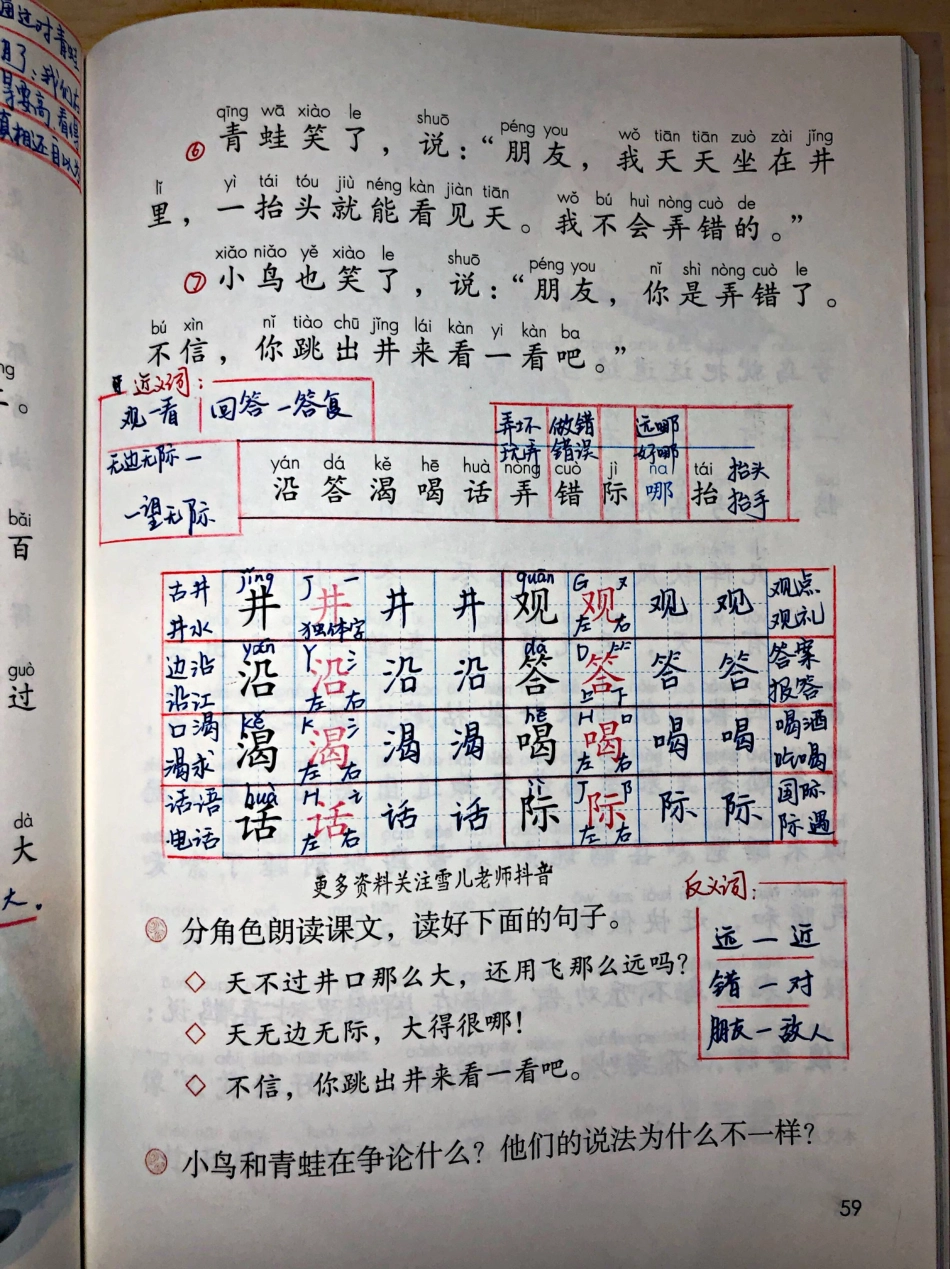 通这对青蛙
qīng wā xiào le shuō péng you wǒ tiān tiān zuò zài jǐng
⑥ 青蛙笑了，说：“朋友，我天天坐在井
lǐ yì tái tóu jiù néng kàn jiàn tiān wǒ bú huì nòng cuò de
里，一抬头就能看见天。我不会弄错的。”
xiǎo niǎo yě xiào le shuō péng you nǐ shì nòng cuò le
⑦ 小鸟也笑了，说：“朋友，你是弄错了。
bú xìn nǐ tiào chū jǐng lái kàn yi kàn ba
不信，你跳出井来看一看吧。”
近义词：
观—看 回答—答复
无边无际—
一望无际
弄坏 做错 远哪
玩弄 错误 好哪
yán dá kě hē huà nòng cuò jì na tái 抬头
沿 答 渴 喝 话 弄 错 际 哪 抬 抬手
古井 jǐng J 一 guān G 又 观点
井水 井 井 井 井 观 观 观 观 观礼
独体字 左 右
边沿 yán Y 氵 dá D 竹 答案
沿江 沿 沿 沿 沿 答 答 答 答 报答
左 右 上 下
口渴 kě K 氵 hē H 口 喝酒
渴求 渴 渴 渴 渴 喝 喝 喝 喝 吃喝
左 右 左 右
话语 huà H 讠 jì J 阝 国际
电话 话 话 话 话 际 际 际 际 际遇
左 右 左 右
更多资料关注雪儿老师抖音
反义词：
远—近
错—对
朋友—敌人
分角色朗读课文，读好下面的句子。
◇ 天不过井口那么大，还用飞那么远吗？
◇ 天无边无际，大得很哪！
◇ 不信，你跳出井来看一看吧。
小鸟和青蛙在争论什么？他们的说法为什么不一样？
59
bǎi
百
guò
过
dà
大
大。